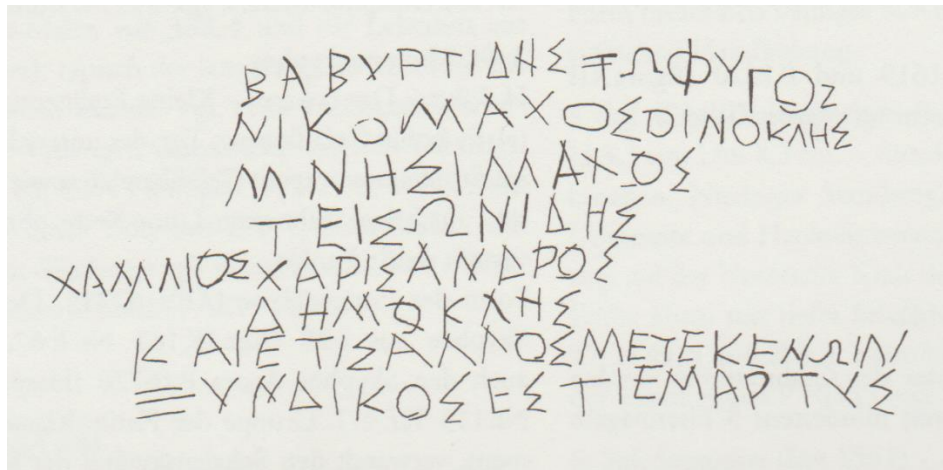 ΒΑΒΥΡΤΙΔΗΣ ΞΩΦΥΓΟΣ
ΝΙΚΟΜΑΧΟΣΟΙΝΟΚΛΗΣ
ΜΝΗΣΙΜΑΧΟΣ
ΤΕΙΣΩΝΙΔΗΣ
ΧΑΡΣΑΝΔΡΟΣ
ΔΗΜΟΚΛΗΣ
ΚΑΙΕΤΣΑΛΛΟΣΜΕΤΕΚΕΝΩΙΝ
ΞΥΝΔΙΚΟΣΕΣΤΙΕΜΑΡΤΥΣ